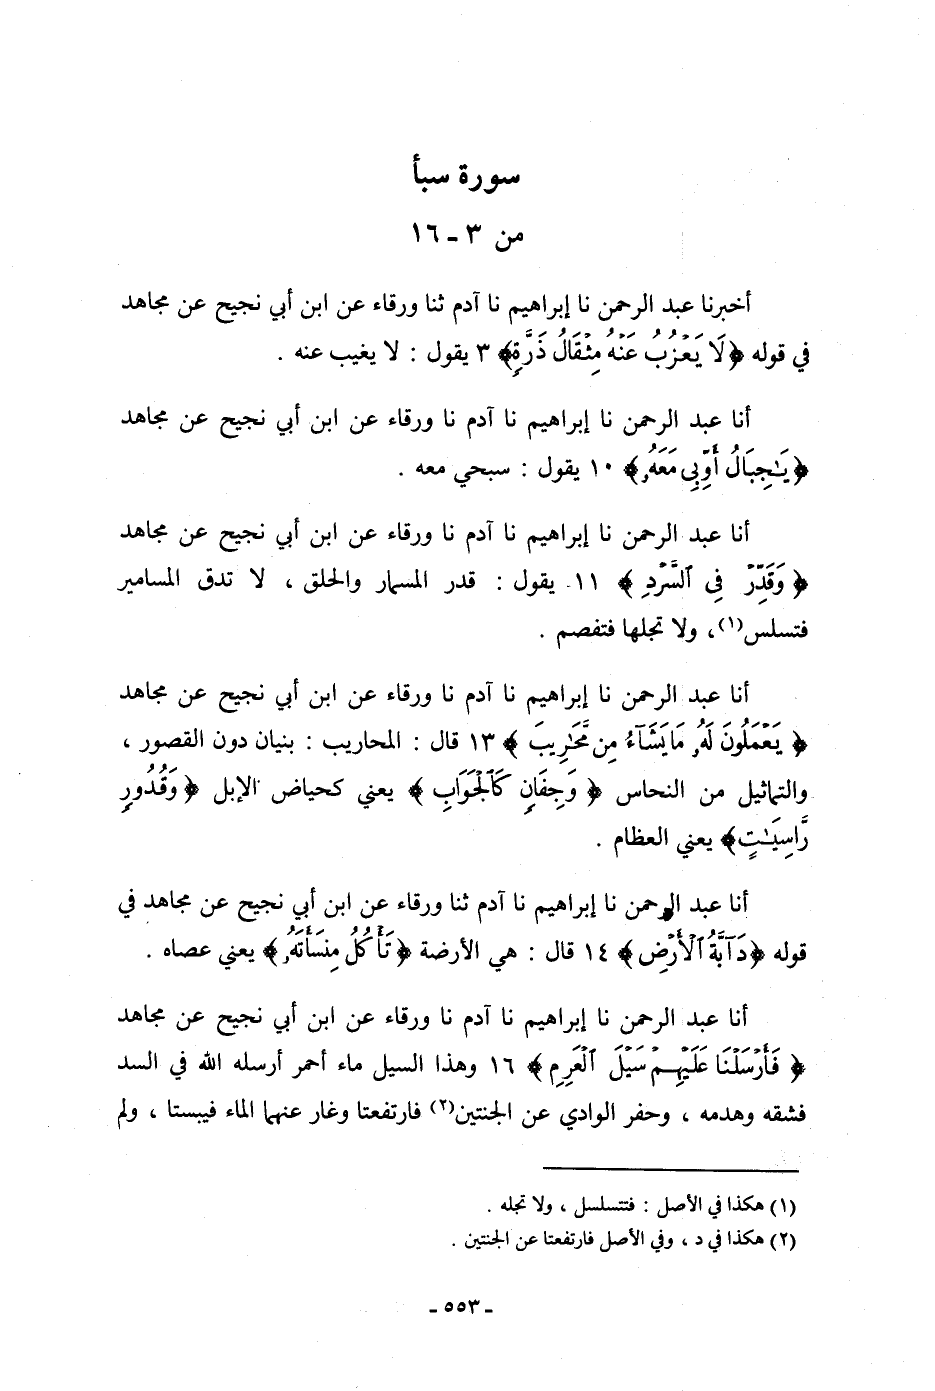 سورة سبأ
من ٣ ـ ١٦
أخبرنا عبد الرحمن نا إبراهيم نا آدم ثنا ورقاء عن ابن أبي نجيح عن مجاهد
في قوله ﴿لَا يَعْزُبُ عَنْهُ مِثْقَالُ ذَرَّةٍ﴾ ٣ يقول : لا يغيب عنه .
أنا عبد الرحمن نا إبراهيم نا آدم نا ورقاء عن ابن أبي نجيح عن مجاهد
﴿يَٰجِبَالُ أَوِّبِى مَعَهُۥ﴾ ١٠ يقول : سبحي معه .
أنا عبد الرحمن نا إبراهيم نا آدم نا ورقاء عن ابن أبي نجيح عن مجاهد
﴿ وَقَدِّرْ فِى ٱلسَّرْدِ ﴾ ١١ يقول : قدر المسمار والحلق ، لا تدق المسامير
فتسلس(١)، ولا تجلها فتفصم .
أنا عبد الرحمن نا إبراهيم نا آدم نا ورقاء عن ابن أبي نجيح عن مجاهد
﴿ يَعْمَلُونَ لَهُۥ مَا يَشَآءُ مِن مَّحَٰرِيبَ ﴾ ١٣ قال : المحاريب : بنيان دون القصور ،
والتماثيل من النحاس ﴿ وَجِفَانٍ كَٱلْجَوَابِ ﴾ يعني كحياض الإبل ﴿ وَقُدُورٍ
رَّاسِيَٰتٍ﴾ يعني العظام .
أنا عبد الرحمن نا إبراهيم نا آدم ثنا ورقاء عن ابن أبي نجيح عن مجاهد في
قوله ﴿دَآبَّةُ ٱلْأَرْضِ﴾ ١٤ قال : هي الأرضة ﴿تَأْكُلُ مِنسَأَتَهُۥ﴾ يعني عصاه .
أنا عبد الرحمن نا إبراهيم نا آدم نا ورقاء عن ابن أبي نجيح عن مجاهد
﴿ فَأَرْسَلْنَا عَلَيْهِمْ سَيْلَ ٱلْعَرِمِ ﴾ ١٦ وهذا السيل ماء أحمر أرسله الله في السد
فشقه وهدمه ، وحفر الوادي عن الجنتين(٢) فارتفعتا وغار عنهما الماء فيبستا ، ولم
(١) هكذا في الأصل : فتتسلسل ، ولا تجله .
(٢) هكذا في د ، وفي الأصل فارتفعتا عن الجنتين .
ـ ٥٥٣ ـ